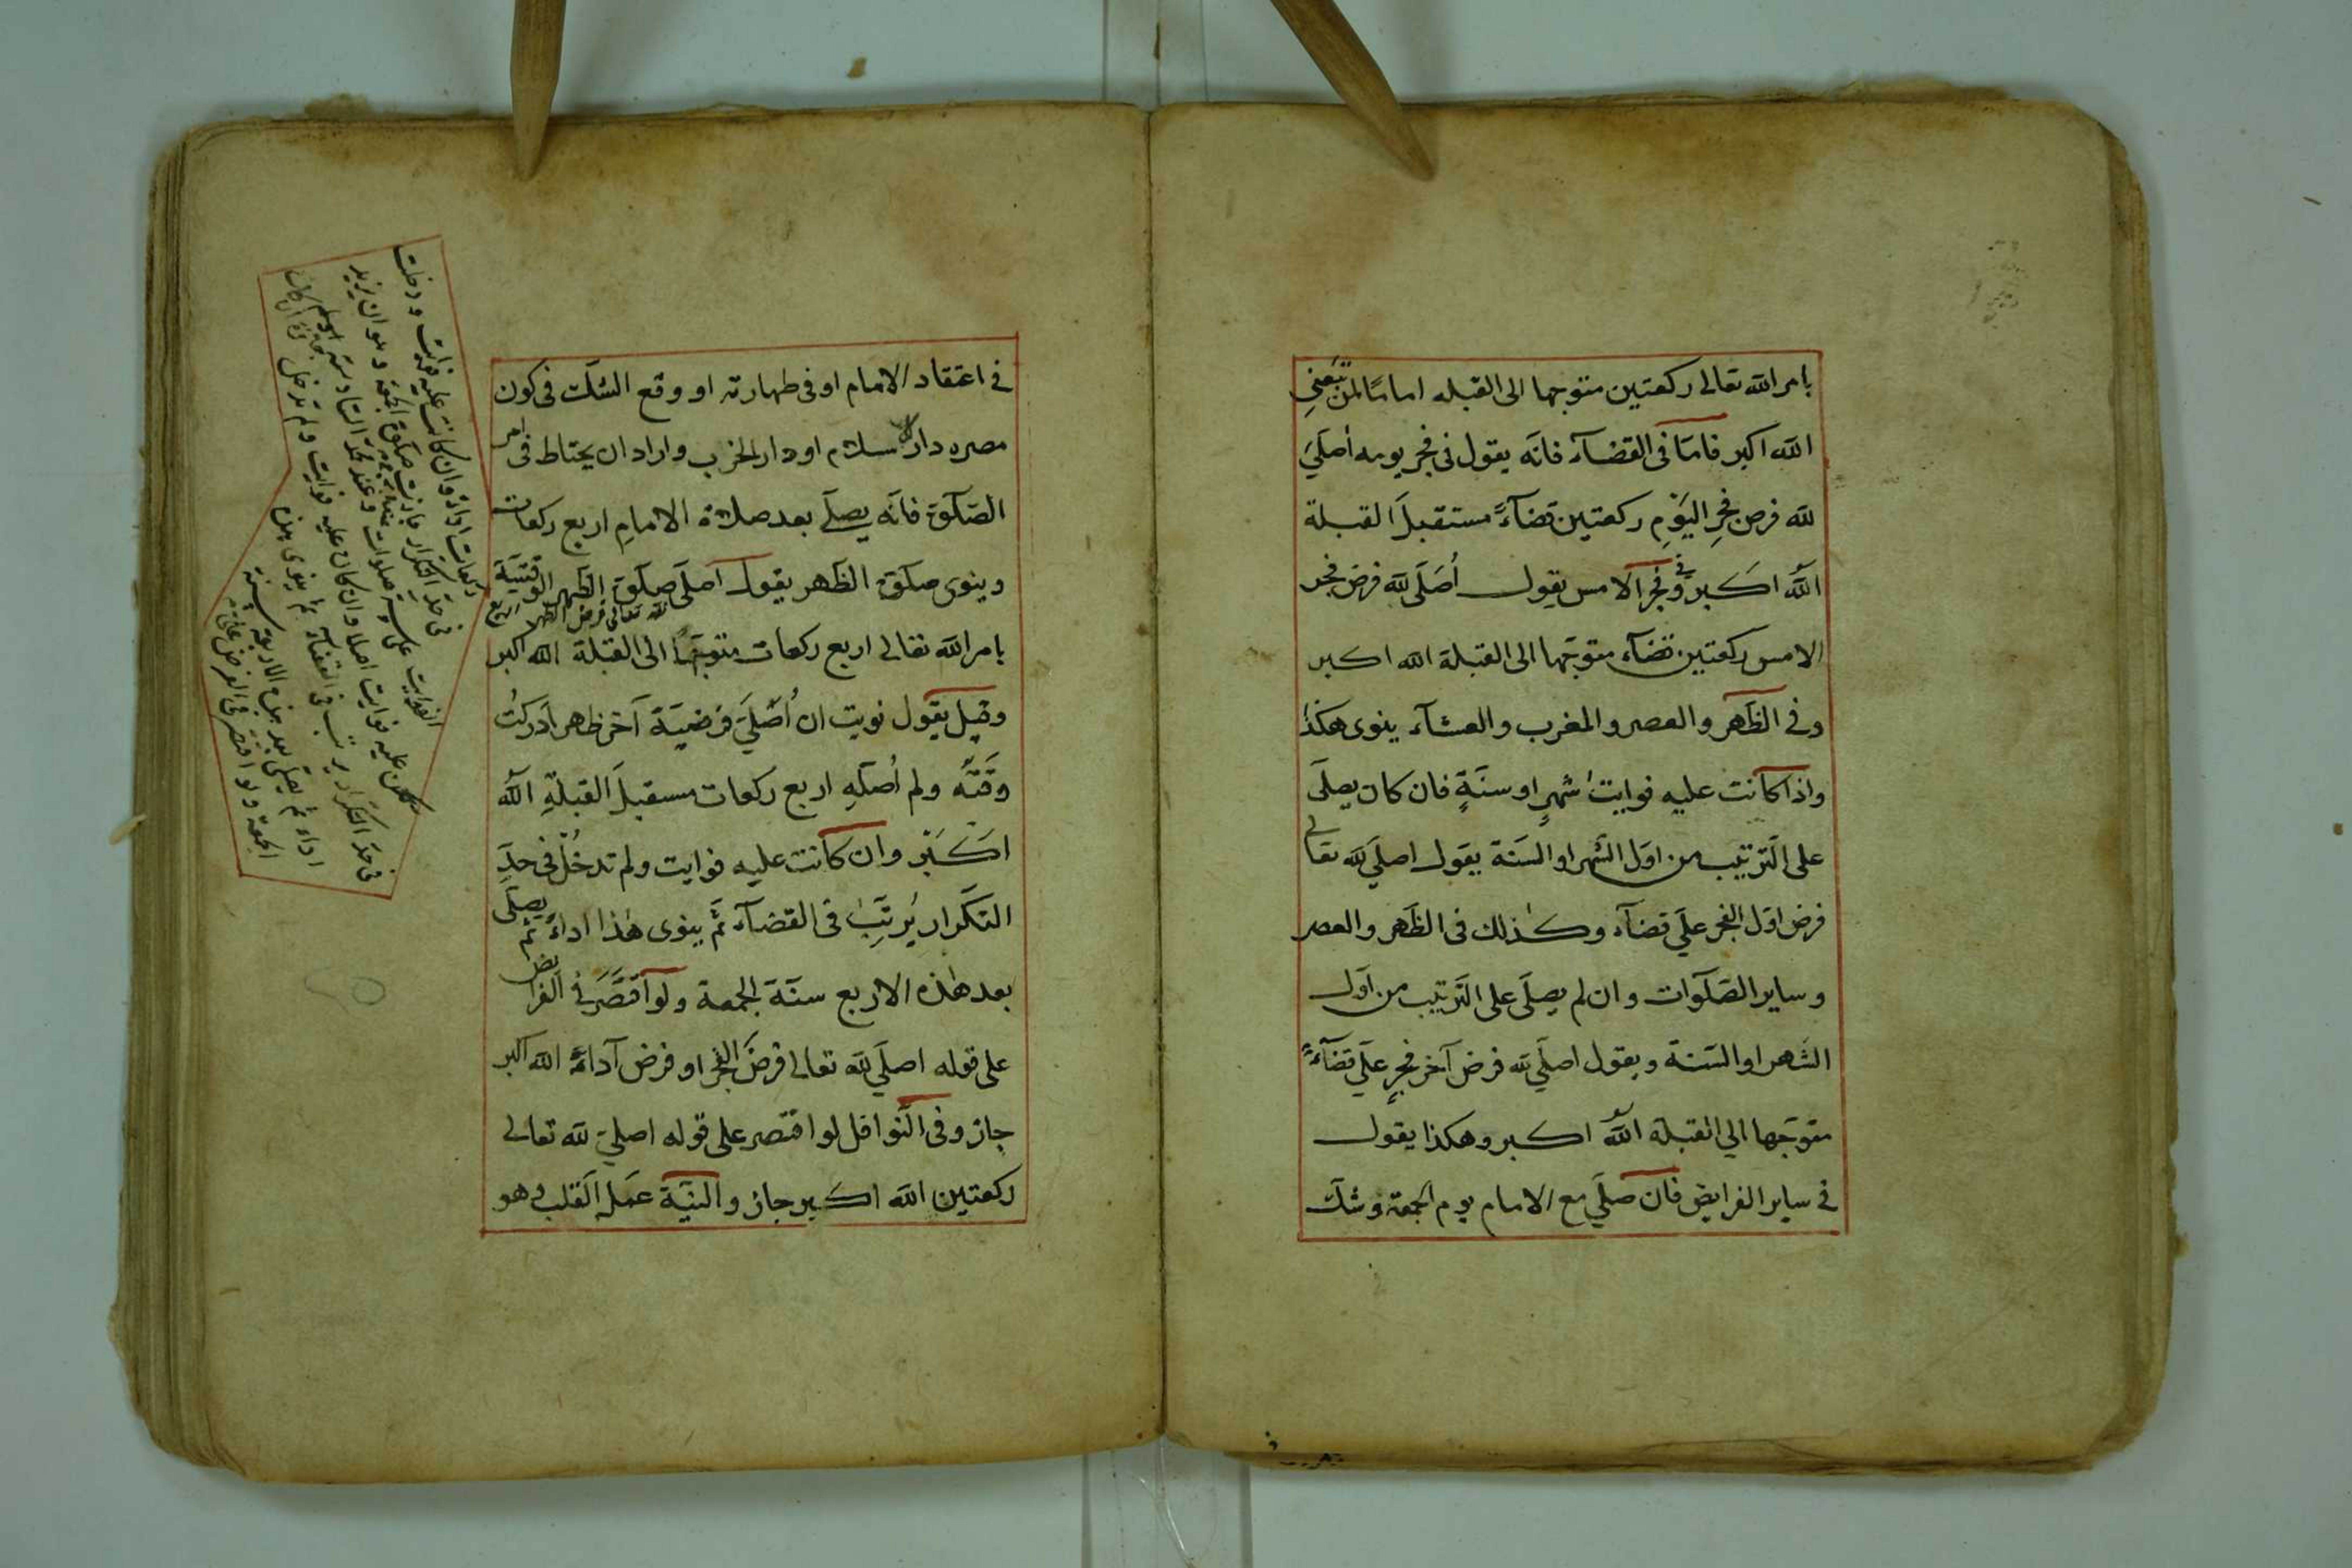 بامر الله تعالى ركعتين متوجها الى القبله اماما لمن تبعني
الله اكبر فامّا فى القضآء فانّه يقول فى فجر يومه اُصلّي
لله فرض فجرِ اليَوْمِ ركعتين قضآءً مستقبلَ القبلة
اللّٰه اكبر وفى فجر الامس يقول اُصَلّى لله فرض فجر
الامس ركعتين قضآء متوجّها الى القبلة الله اكبر
وفى الظّهر والعصر والمغرب والعشآء ينوى هكذا
واذا كانت عليه فوايت شهرٍ او سنَةٍ فان كان يصلّى
على التّرتيب من اوّل الشّهر او السّنة يقول اصلّي لله تعالى
فرض اوّل الفجر علَي قضآء وكذلك فى الظّهر والعصر
وساير الصّلَوات وان لم يصلّى على التّرتيب من اوّل
الشّهر او السّنة ويقول اصلّي لله فرض آخر فجرٍ علَي قضآءً
متوجّها الي القبلة اللّٰه اكبر وهكذا يقول
فى ساير الفرايض فان صلّي مع الامام يوم الجمعة وشكّ
فى اعتقاد الامام او فى طهارته او وقع الشكّ فى كون
مصره دار الاسلام او دار الحرب واراد ان يحتاط فى امر
الصّلوة فانّه يصلّي بعد صلاة الامامِ اربع ركعات
وينوى صلوة الظّهر يقول اصلّى صلوة الظّهر الوقتيّة
لله تعالى فرض الظهر اربع
بامر الله تعالى اربع ركعات متوجّهًا الى القبلة الله اكبر
وقيل يقول نويت ان اُصلّيَ فرضيّة آخر ظهر ادركتُ
وقَتَه ولم اُصلّهِ اربع ركعات مستقبلَ القبلةِ اللّٰه
اكَبَر وان كانت عليه فوايت ولم تدخُل فى حدِّ
التكرار يُرتِّبُ فى القضآء ثمّ ينوى هٰذا اداءً ثم يصلّى
بعد هٰذه الاربع سنّة الجمعة ولو اقتَصَر فى الفرايض
على قوله اصلّي لله تعالى فرضَ الفجر او فرض آداءً الله اكبر
جاز وفى النّوافل لو اقتصر على قوله اصلي لله تعالى
ركعتين اللّه اكبر جاز والنيّة عمل القلب وهو
ركعات اداء وان كانت عليه فوايت ودخلت
فى حدّ التكرار جازت صلوة الجمعة وهو ان يزيد
الفوايت على ستّة صلوات وعند محمّد السّادسة
عليه فوايت اصلا وان كان عليه فوايت ولم تدخل
فى حدّ التكرار يرتّب فى القضاء ثم ينوى بهذه
اداء ثم يصلّى بعد هذه الاربعة سنة
الجمعة ولو اقتصر فى الفرض على